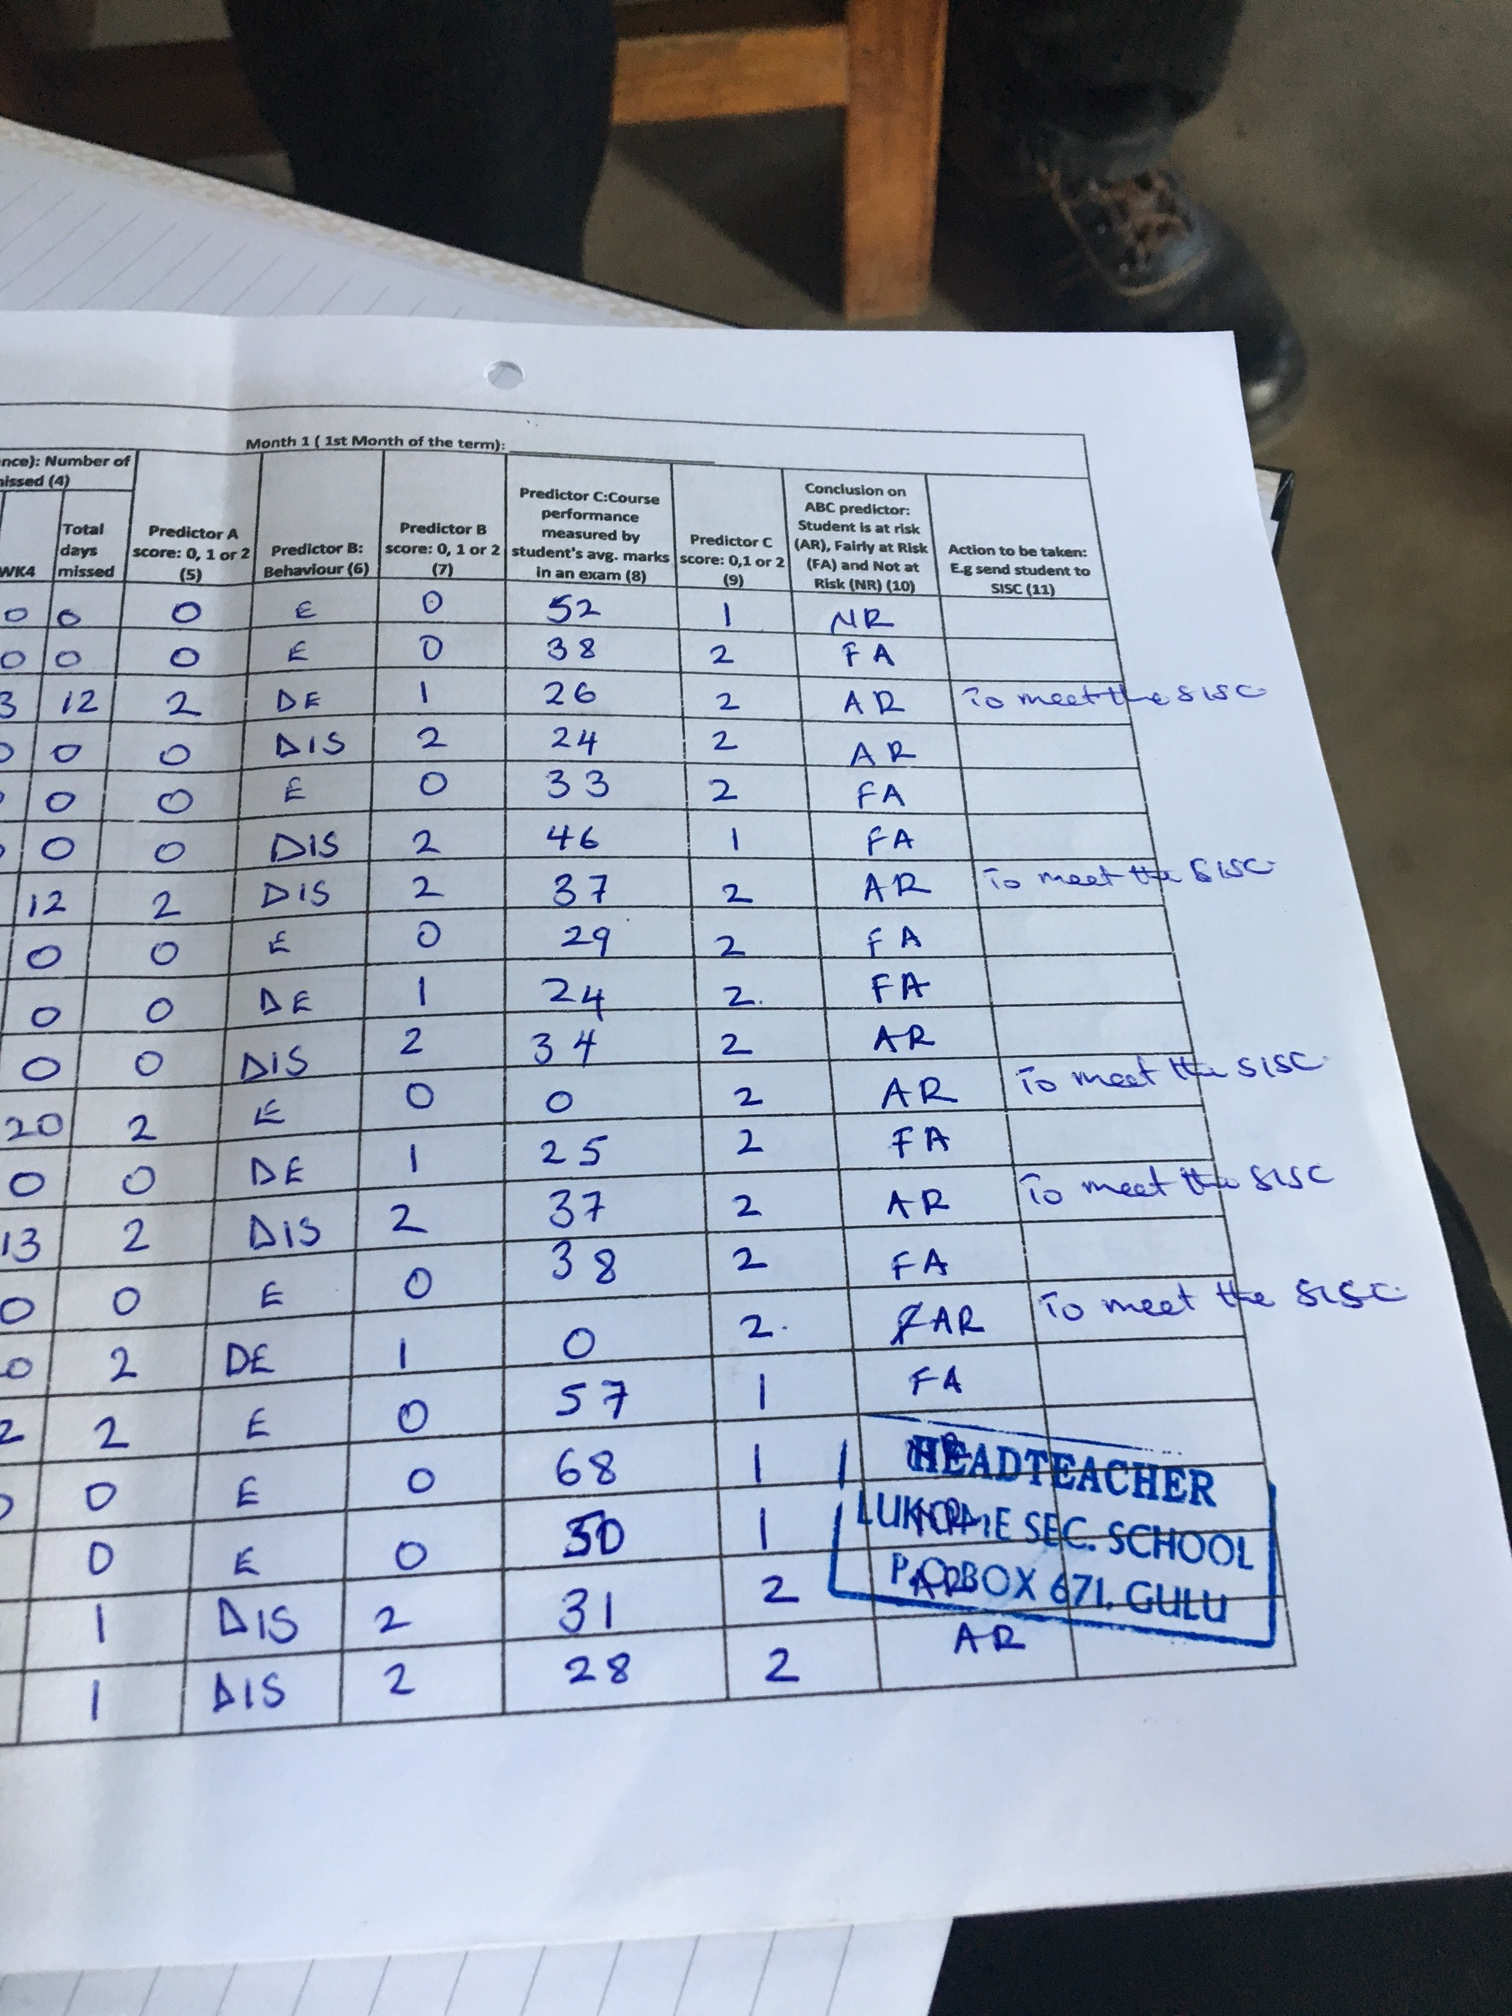 Month 1 ( 1st Month of the term):
nce): Number of
issed (4)
WK4
Total
days
missed
Predictor A
score: 0, 1 or 2
(5)
Predictor B:
Behaviour (6)
Predictor B
score: 0, 1 or 2
(7)
Predictor C:Course
performance
measured by
student's avg. marks
in an exam (8)
Predictor C
score: 0,1 or 2
(9)
Conclusion on
ABC predictor:
Student is at risk
(AR), Fairly at Risk
(FA) and Not at
Risk (NR) (10)
Action to be taken:
E.g send student to
SISC (11)
0 0 0 E 0 52 1 NR
0 0 0 E 0 38 2 FA
3 12 2 DE 1 26 2 AR To meet the SISC
0 0 0 DIS 2 24 2 AR
0 0 E 0 33 2 FA
0 0 DIS 2 46 1 FA
12 2 DIS 2 37 2 AR To meet the SISC
0 0 E 0 29 2 FA
0 0 DE 1 24 2. FA
0 0 DIS 2 34 2 AR
20 2 E 0 0 2 AR To meet the SISC
0 0 DE 1 25 2 FA
13 2 DIS 2 37 2 AR To meet the SISC
0 0 E 0 38 2 FA
0 2 DE 1 0 2. AR To meet the SISC
2 2 E 0 57 1 FA
0 E 0 68 1
0 E 0 50 1
1 DIS 2 31 2 AR
1 DIS 2 28 2 AR
HEADTEACHER
LUKOME SEC. SCHOOL
P.O.BOX 671, GULU